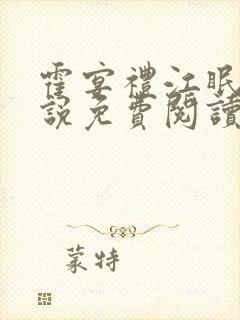 霍宴禮江眠
說免費閱讀
蒙特